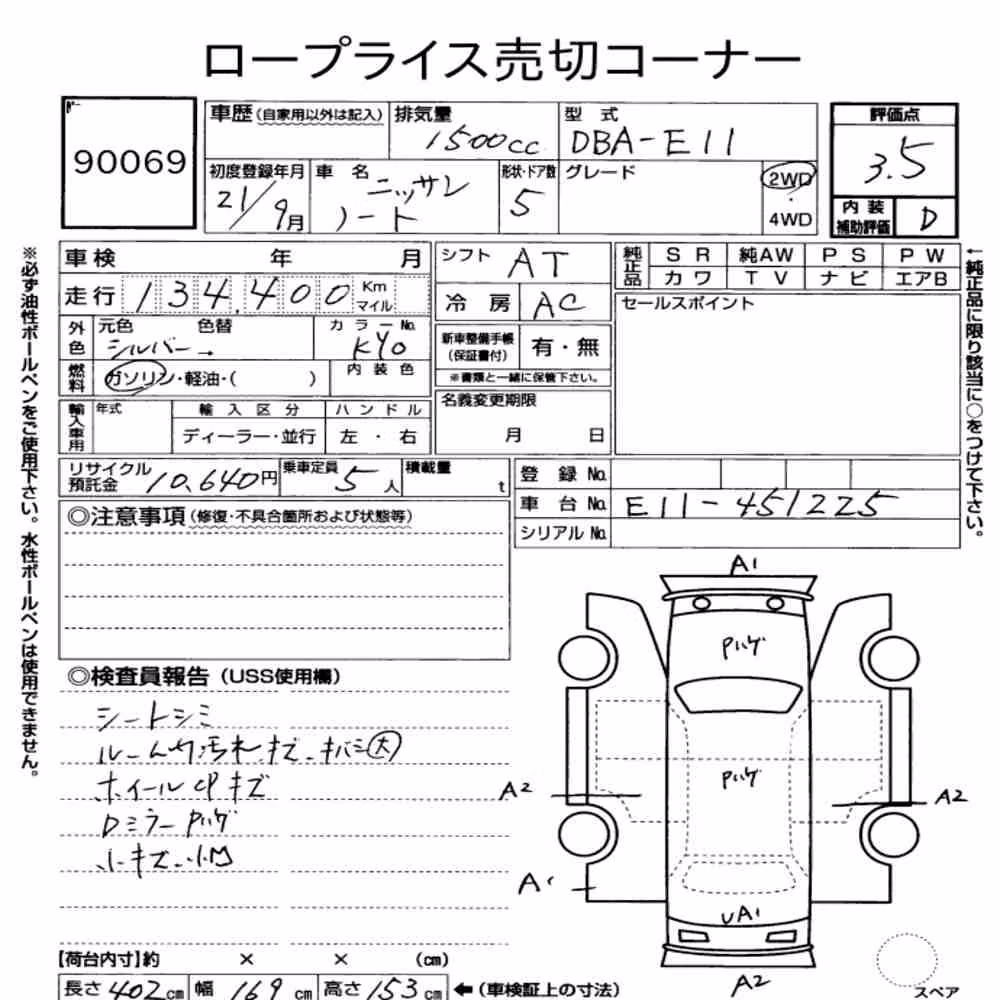 ロープライス売切コーナー
90069
車歴(自家用以外は記入)
排気量
1500cc
型式
DBA-E11
評価点
3.5
初度登録年月
21/9月
車名
ニッサン
ノート
形状・ドア数
5
グレード
2WD
・
4WD
内装
補助評価
D
※必ず油性ボールペンをご使用下さい。水性ボールペンは使用できません。
車検 年 月
走行 134,400 Km
マイル
外色
元色 色替
シルバー→
カラーNo.
KY0
燃料
ガソリン・軽油・( )
内装色
輸入車用
年式
輸入区分
ディーラー・並行
ハンドル
左・右
シフト
AT
冷房
AC
新車整備手帳
(保証書付)
有・無
※書類と一緒に保管下さい。
名義変更期限
月 日
純正品
SR 純AW PS PW
カワ TV ナビ エアB
セールスポイント
←純正品に限り該当に○をつけて下さい。
リサイクル
預託金
10,640円
乗車定員
5人
積載量
t
登録No.
車台No.
E11-451225
シリアルNo.
◎注意事項(修復・不具合箇所および状態等)
◎検査員報告(USS使用欄)
シートシミ
ルーム内汚れ、キズ、キバミ大
ホイールCPキズ
Dミラー Pハゲ
小キズ、小凹
A1
Pハゲ
Pハゲ
A2
A2
A1
UA1
A2
スペア
【荷台内寸】約 × × (cm)
長さ402cm 幅169cm 高さ153cm ←(車検証上の寸法)